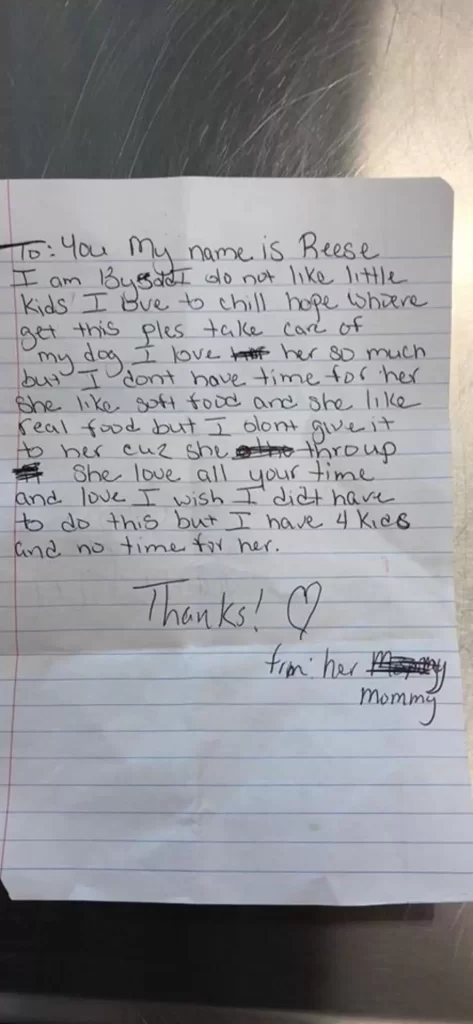 To: You My name is Reese
I am 13y old I do not like little
Kids I love to chill hope whoere
get this ples take care of
my dog I love her so much
but I dont have time for her
She like soft food and she like
real food but I dont give it
to her cuz she throup
She love all your time
and love I wish I did't have
to do this but I have 4 Kids
and no time for her.
Thanks! ♡
frm: her
mommy